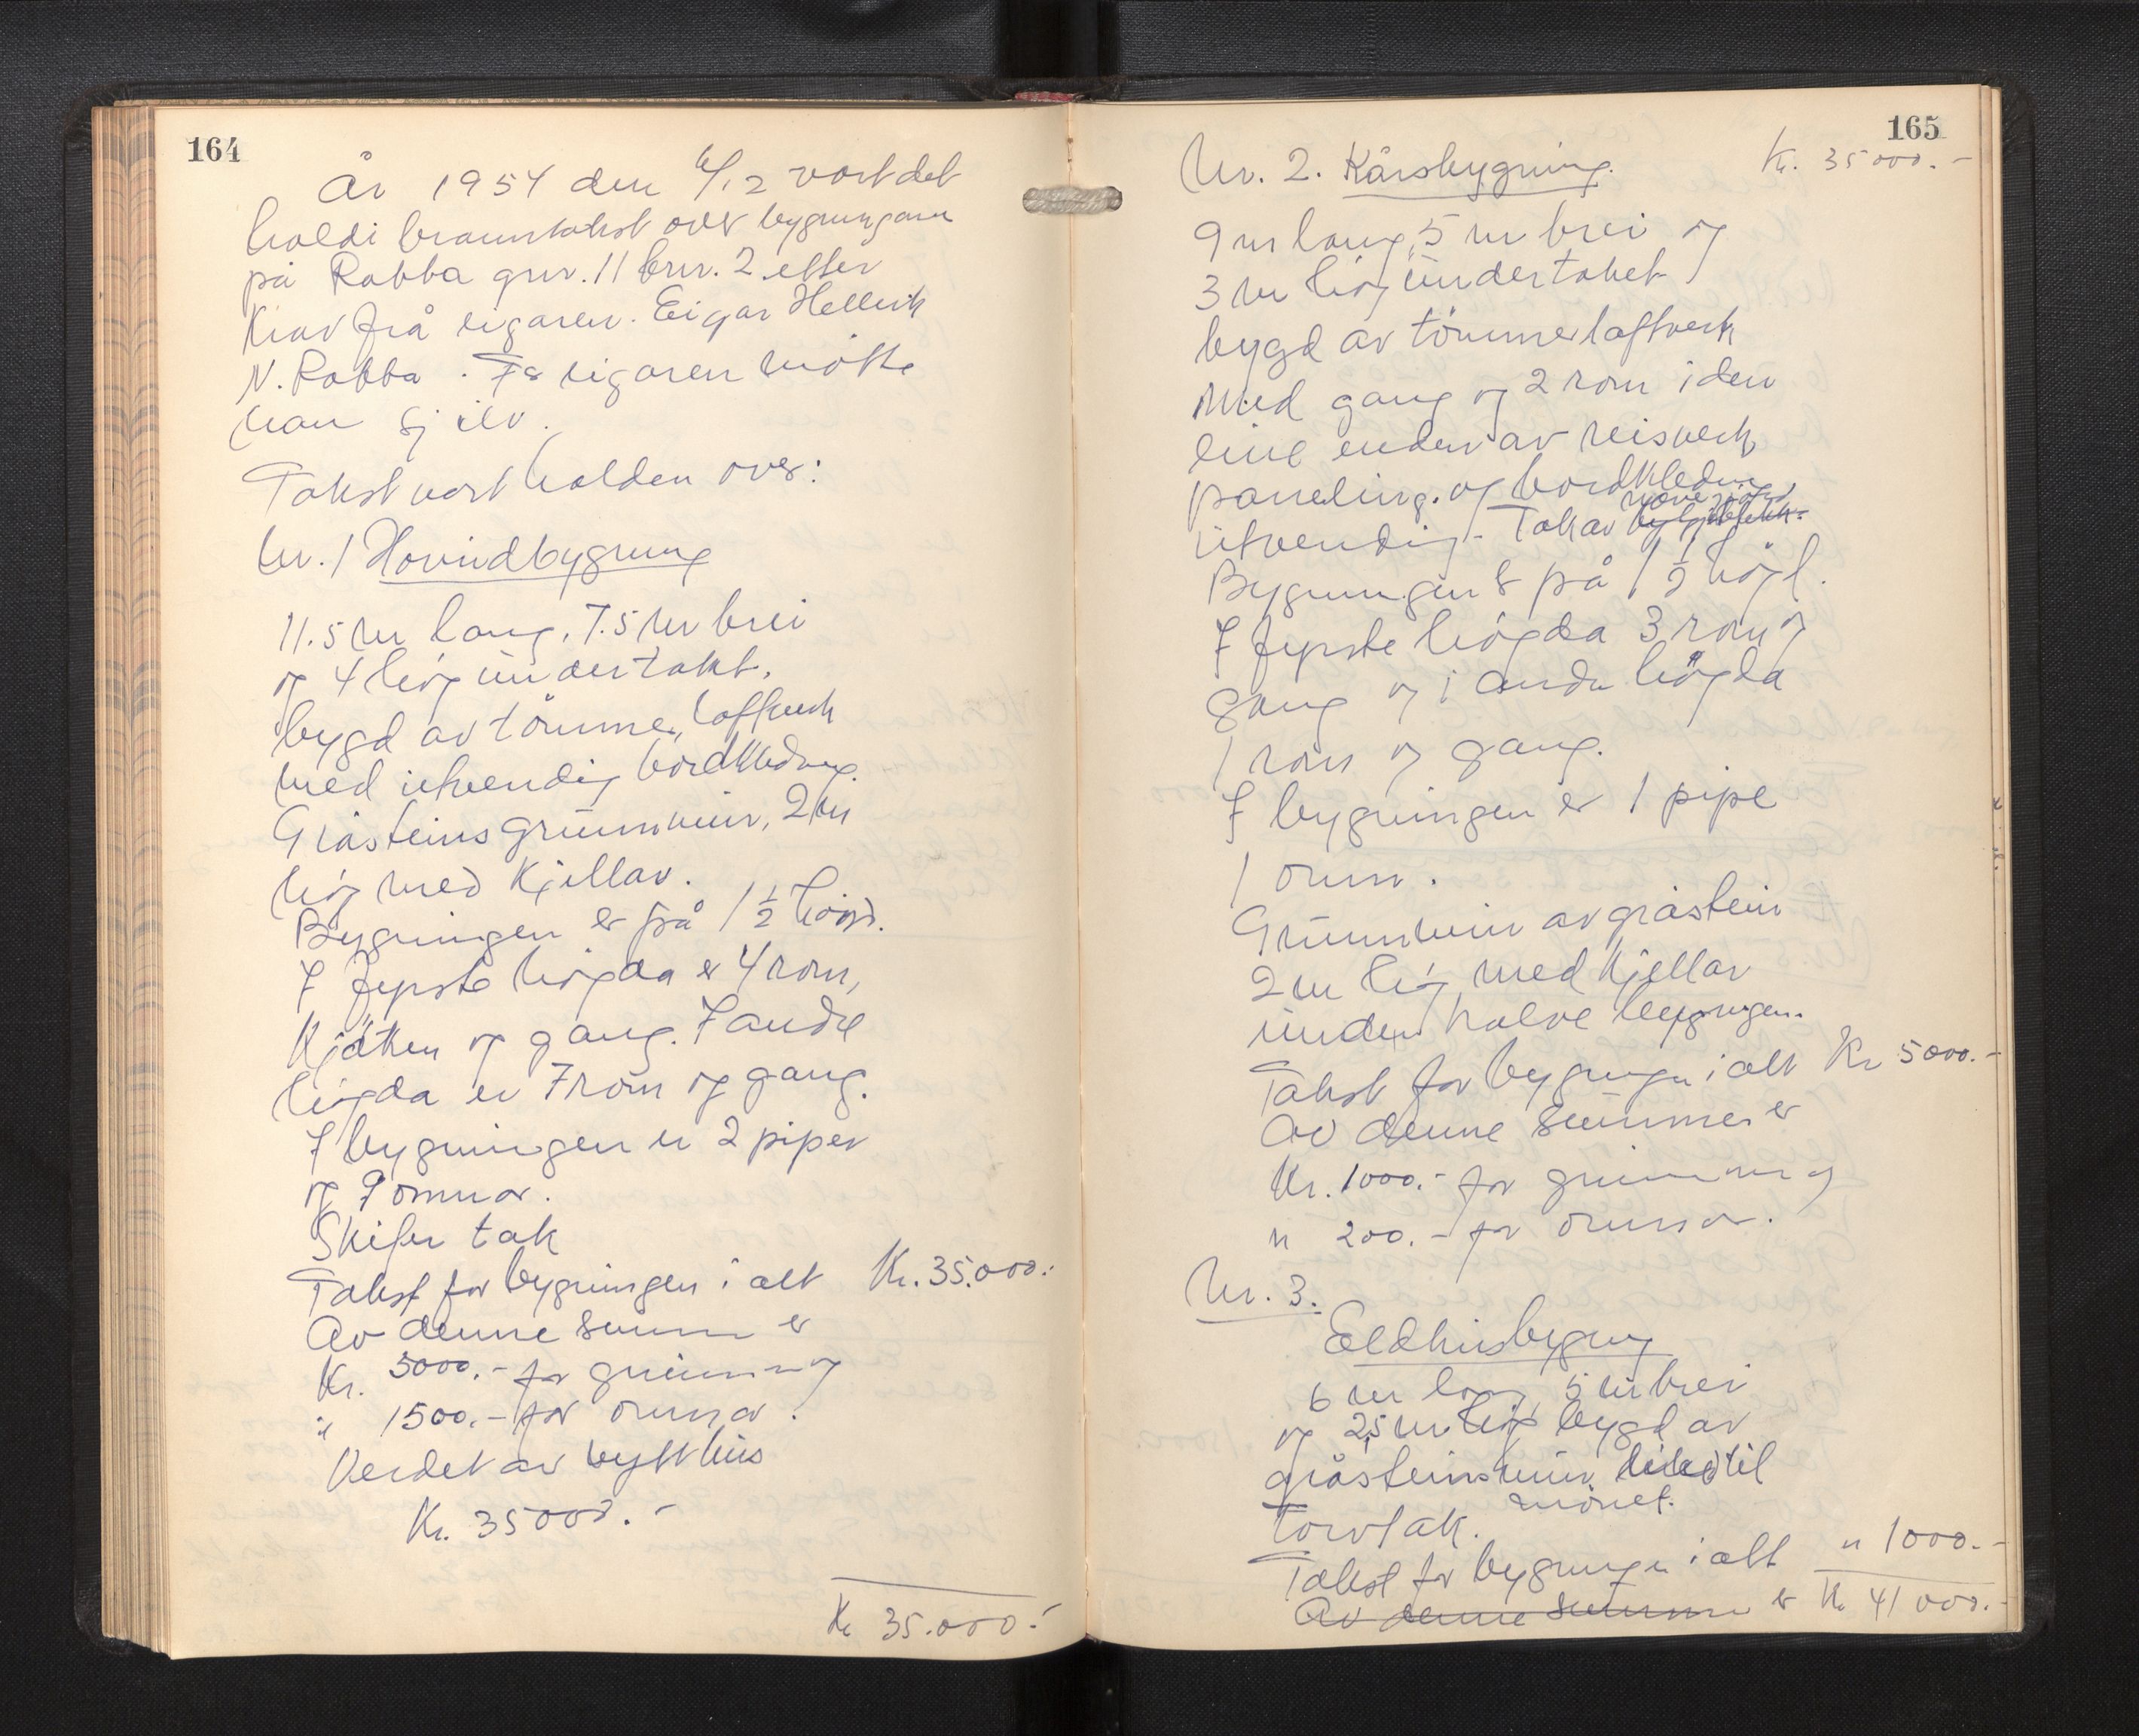 164
År 1954 den 6/12 vart det
haldi branntakst over bygningane
på Rabba gnr. 11 bnr. 2 etter
Krav frå eigaren. Eigar Hellik
N. Rabba. Fø eigaren møtte
han sjølv.
Takst vart halden over:
Nr. 1 Hovudbygning
11.5 m lang, 7.5 m brei
og 4 høg under taket.
bygd av tömmer, lafteverk
med utvendig bordkledning.
Gråsteins grunnmur, 2 m
høg med Kjellar.
Bygningen er på 1 1/2 høgd.
I fyrste høgda er 4 rom,
Kjøken og gang. I andre
høgda er 7 rom og gang.
I bygningen er 2 piper
og 9 omnar.
Skifer tak
Takst for bygningen i alt Kr. 35.000.-
Av denne summen er
Kr. 5000.- for grunnm og
" 1500.- for omnar.
Verdet av nytt hus
Kr. 35000.-
Kr 35.000.-
165
Kr. 35000.-
Nr. 2. Kårsbygning.
9 m lang, 5 m brei og
3 m høg under taket
bygd av tömmerlafteverk
med gang og 2 rom i den
eine enden av reisverk
paneling. og bordkledning
utvendig. Tak av
Bygningen er på 1 1/2 högd.
I fyrste høgda 3 rom og
gang og i andre högda
1 rom og gang.
I bygningen er 1 pipe
1 omn.
Grunnmur av gråstein
2 m høg med kjellar
under halve bygningen.
Takst for bygningen i alt Kr 5000.-
Av denne summen er
Kr. 1000.- for grunnmur og
" 200.- for omnar.
Nr. 3.
Eldhusbygning
6 m lang, 5 m brei
og 2,5 m høg bygd av
gråsteinsmur til
mönet.
Torvtak.
Takst for bygningen i alt " 1000.-
Av denne summen er Kr 41000.-